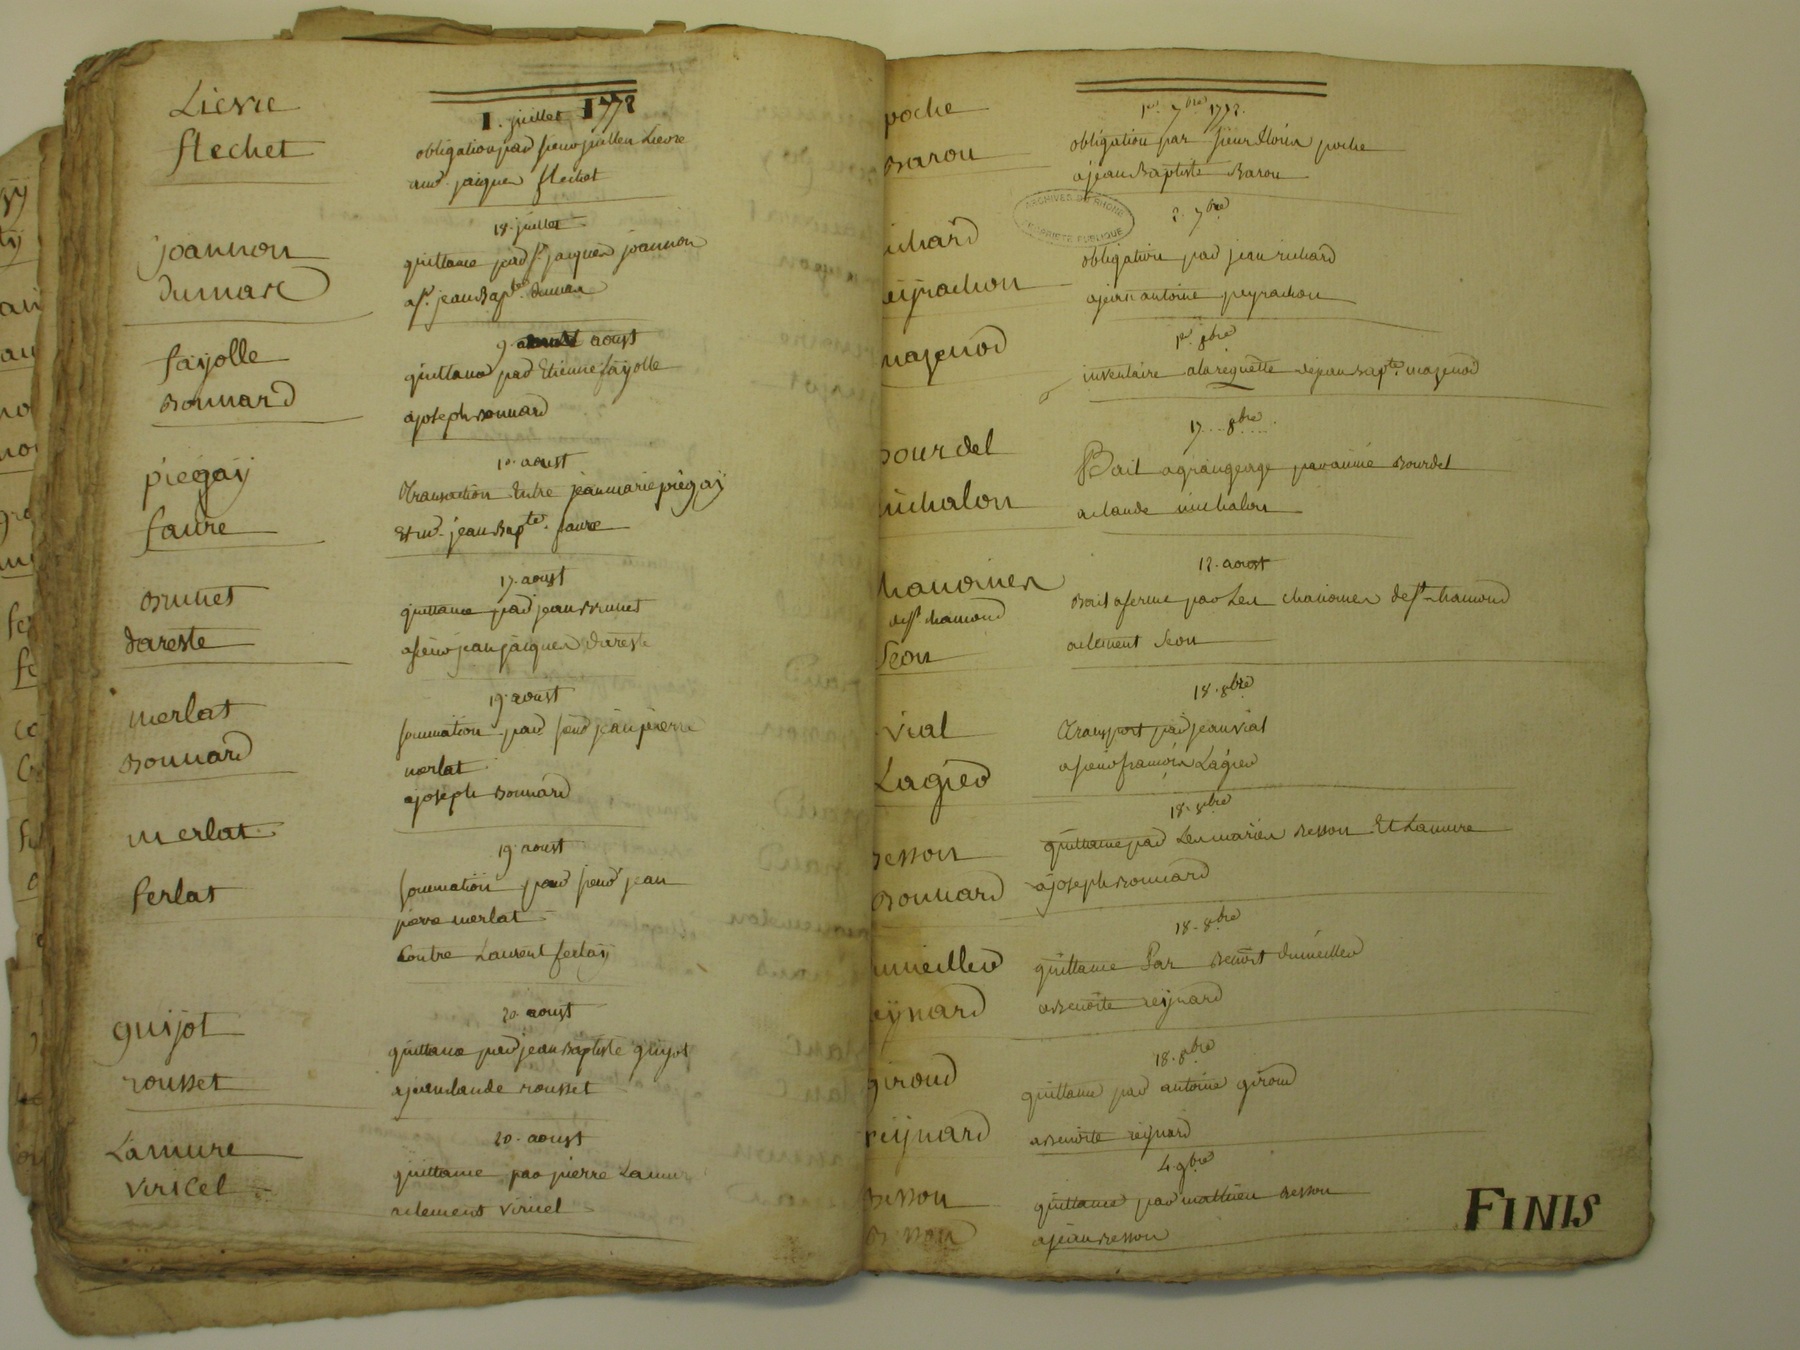 Lievre
flechet
1. juillet 1778
obligation par sieur jullien Lievre
aud. jacques flechet
joannon
dumas
18. juillet
quittance par sr. jacques joannon
a sr. jean Bapte. dumas
fayolle
Bonnard
9 aoust
quittance par Etienne fayolle
a joseph Bonnard
piegay
faure
10. aoust
Transaction Entre jean marie piegay
Et md. jean Bapte. faure
Brunet
dareste
17. aoust
quittance par jean Brunet
a sieur jean jacques dareste
merlat
Bonnard
19. aoust
sommation par sieur jean pierre
merlat
a joseph Bonnard
merlat
ferlat
19. aoust
sommation par sieur jean
pierre merlat
contre Laurent ferlay
guijot
rousset
20. aoust
quittance par jean Baptiste guyot
a jean claude rousset
Lamure
Viricel
20. aoust
quittance par pierre Lamure
a clement viricel
poche
Baron
1er. 7bre 1778.
obligation par sieur poche
a jean Baptiste Baron
ARCHIVES DU RHONE
PROPRIETE PUBLIQUE
richard
peyrachon
2. 7bre
obligation par jean richard
a jean antoine peyrachon
mazenod
1er. 8bre
inventaire a la requette de jean Bapte. mazenod
Bourdel
michalon
17. 8bre
Bail a grangeage par aimé Bourdel
a claude michalon
chanoines
de st. chamond
Seon
12. aoust
Bail a ferme par Les chanoines de st. chamond
a clement Seon
vial
Lagier
18. 8bre
Transport par jean vial
a sieur françois Lagier
Besson
Bonnard
18. 8bre
quittance par Les mariés Besson Et Lamure
a joseph Bonnard
dumeiller
reynard
18. 8bre
quittance Par Benoit dumeiller
a Benoite reynard
giroud
reijnard
18. 8bre
quittance par antoine giroud
a Benoite reijnard
Besson
Besson
4. 9bre
quittance par mathieu Besson
a jean Besson
FINIS